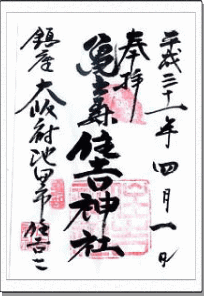 平成三十一年四月一日
奉拝
亀之森住吉神社
鎮座大阪府池田市住吉二